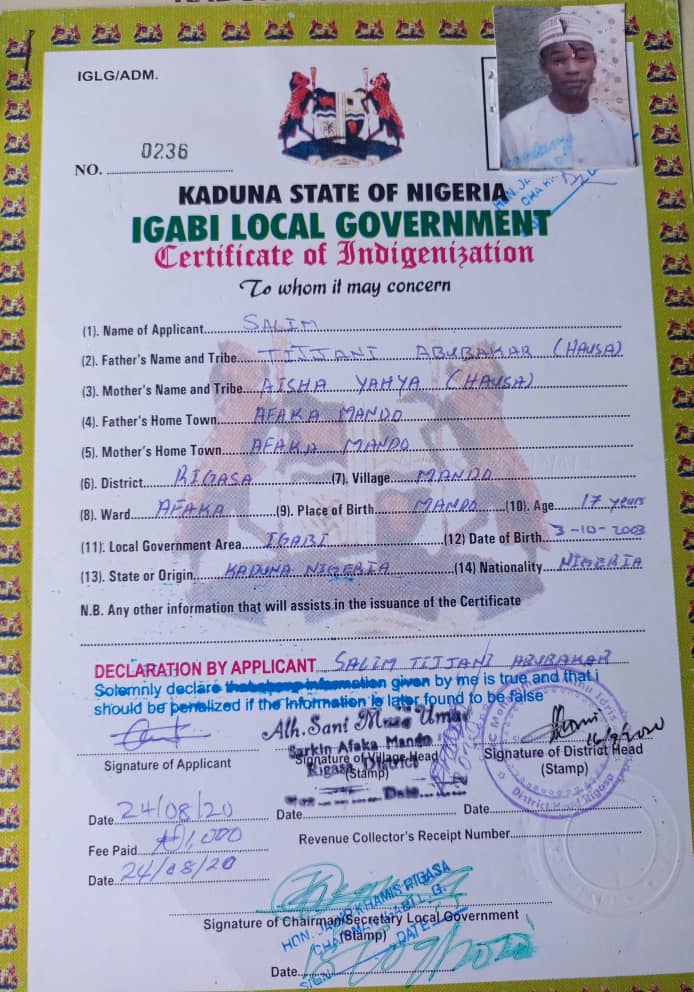 IGLG/ADM.
NO. 0236
KADUNA STATE OF NIGERIA
IGABI LOCAL GOVERNMENT
Certificate of Indigenization
To whom it may concern
(1). Name of Applicant....SALIM
(2). Father's Name and Tribe...TIJJANI ABUBAKAR (HAUSA)
(3). Mother's Name and Tribe...AISHA YAHYA (HAUSA)
(4). Father's Home Town...AFAKA MANDO
(5). Mother's Home Town...AFAKA MANDO
(6). District...RIGASA (7). Village...MANDO
(8). Ward...AFAKA (9). Place of Birth...MANDO (10). Age...17 years
(11). Local Government Area...IGABI (12) Date of Birth...3-10-2003
(13). State or Origin...KADUNA NIGERIA (14) Nationality...NIGERIA
N.B. Any other information that will assists in the issuance of the Certificate
DECLARATION BY APPLICANT SALIM TIJJANI ABUBAKAR
Solemnly declare information given by me is true and that i
should be penalized if the information is later found to be false
Alh. Sani Musa Umar
Sarkin Afaka Mando
Rigasa District
Signature of Applicant
Signature of Village Head
(Stamp)
Signature of District Head
(Stamp)
16/9/2020
District Head Rigasa
Date...24/08/20 Date... Date...
Fee Paid...₦1,000 Revenue Collector's Receipt Number...
Date...24/08/20
HON. JABIR KHAMIS RIGASA
CHAIRMAN IGABI L.G.
Signature of Chairman/Secretary Local Government
(Stamp)
SIGN DATE
Date...